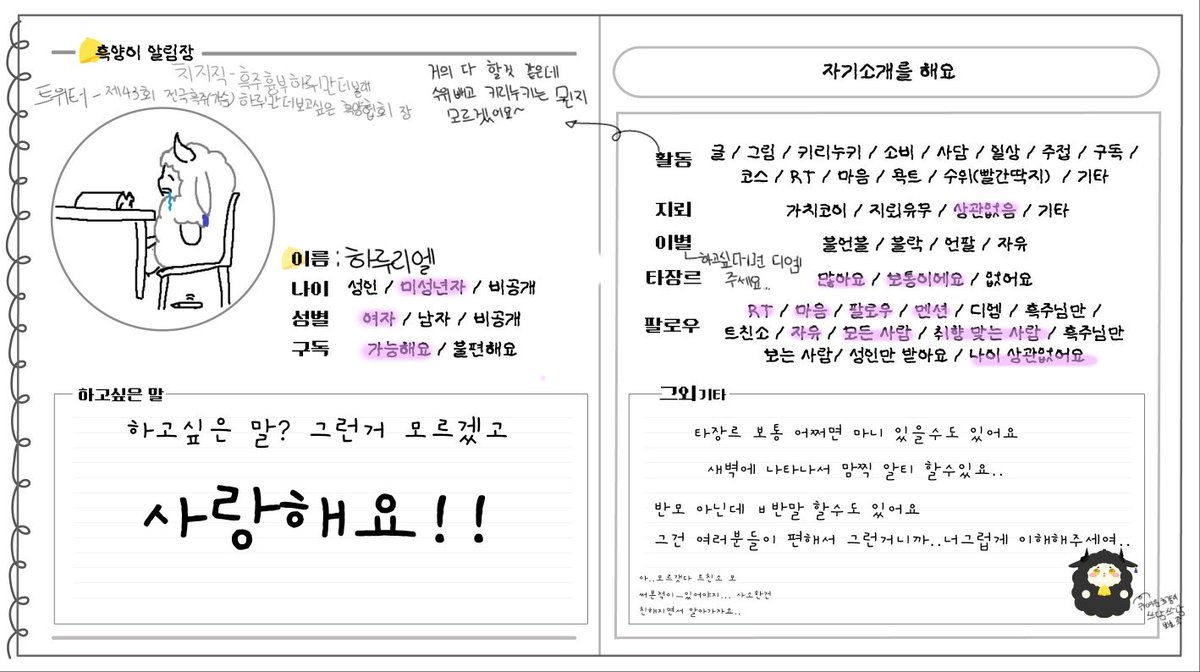 흑양이 알림장
치지직 - 흑주흥부하루간더볼래
트위터 - 제43회 전국흑주(가슴) 하루간더보고싶은 흑양협회 장
이름 : 하루리엘
나이 성인 / 미성년자 / 비공개
성별 여자 / 남자 / 비공개
구독 가능해요 / 불편해요
하고싶은 말
하고싶은 말? 그런거 모르겠고
사랑해요!!
거의 다 할것 같은데
수위빼고 키리누키는 뭔지
모르겠어요~
자기소개를 해요
활동 글 / 그림 / 키리누키 / 소비 / 사담 / 일상 / 주접 / 구독 /
코스 / RT / 마음 / 욕트 / 수위(빨간딱지) / 기타
지뢰 가치코이 / 지뢰유무 / 상관없음 / 기타
이별 블언블 / 블락 / 언팔 / 자유
하고싶다면 디엠
주세요..
타장르 많아요 / 보통이에요 / 없어요
팔로우 RT / 마음 / 팔로우 / 멘션 / 디엠 / 흑주님만 /
트친소 / 자유 / 모든 사람 / 취향 맞는 사람 / 흑주님만
보는 사람 / 성인만 받아요 / 나이 상관없어요
그외 기타
타장르 보통 어쩌면 마니 있을수도 있어요
새벽에 나타나서 맘찍 알티 할수있요..
반모 아닌데 ㅂ반말 할수도 있어요
그건 여러분들이 편해서 그런거니까..너그럽게 이해해주세여..
아..모르갯다 트친소 모
써본적이ㅡ있어야지... 사소한건
친해지면서 알아가자요..
쓰담쓰담